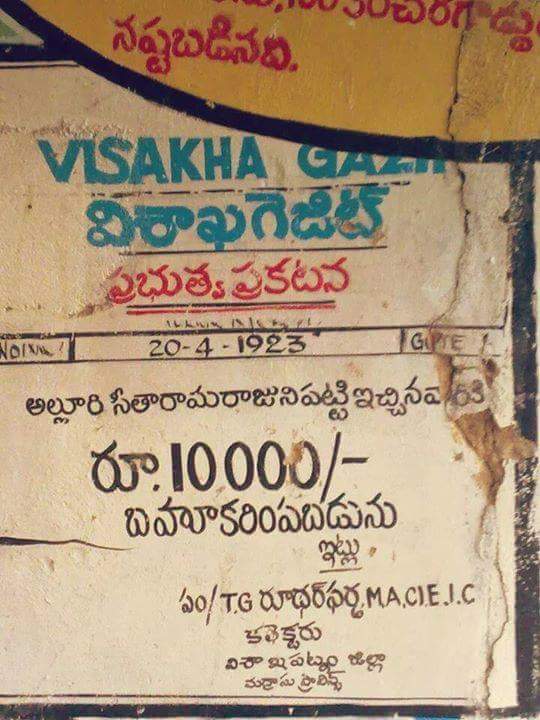 నష్టబడినది.
VISAKHA
విశాఖగెజిట్
ప్రభుత్వ ప్రకటన
20-4-1923
అల్లూరి సీతారామరాజునిపట్టి ఇచ్చినవారికి
రూ.10000/-
బహూకరింపబడును
ఇట్లు.
సం/T.G రూథర్‌ఫర్డ్,M.A,C.I.E,I.C
కలెక్టరు
విశాఖపట్నం జిల్లా
మద్రాసు ప్రావిన్స్